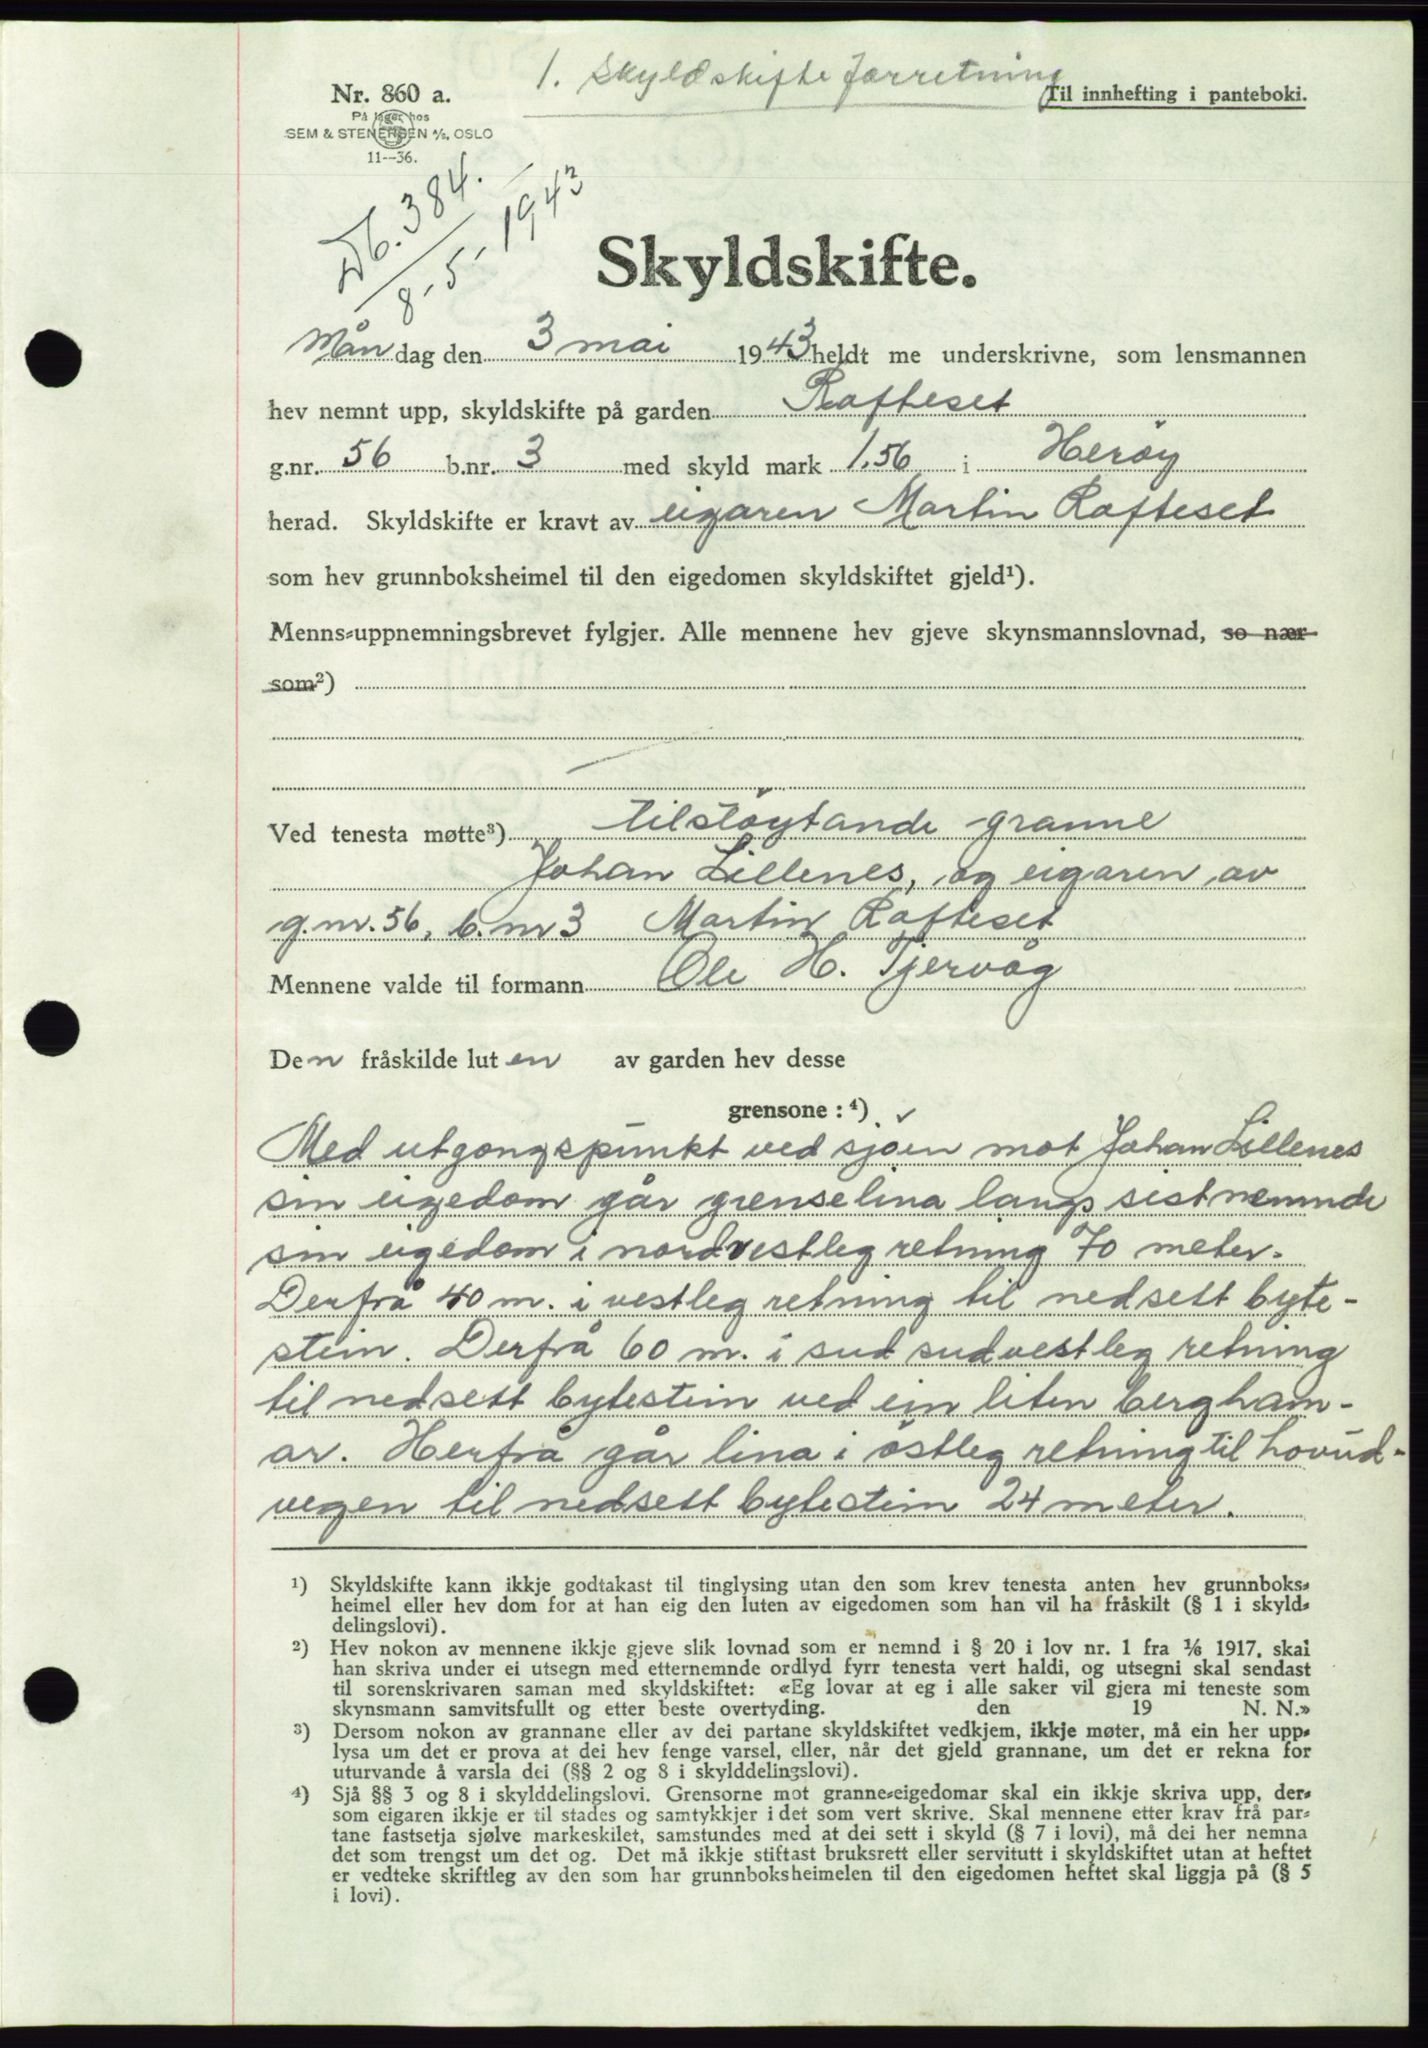 1. Skyldskifteforretning
Nr. 860 a.
Til innhefting i panteboki.
På lager hos
SEM & STENERSEN A/S, OSLO
11--36.
Db. 384.
8-5-1943
Skyldskifte.
Måndag den 3 mai 1943 heldt me underskrivne, som lensmannen
hev nemnt upp, skyldskifte på garden Rafteset
g.nr. 56 b.nr. 3 med skyld mark 1,56 i Herøy
herad. Skyldskifte er kravt av eigaren Martin Rafteset
som hev grunnboksheimel til den eigedomen skyldskiftet gjeld¹).
Menns-uppnemningsbrevet fylgjer. Alle mennene hev gjeve skynsmannslovnad, so nær
som²)
Ved tenesta møtte³) tilstöytande granne
Johan Lillenes, og eigaren av
g.nr. 56, b.nr 3 Martin Rafteset
Mennene valde til formann Ole H. Tjervåg
Den fråskilde luten av garden hev desse
grensone : ⁴)
Med utgongspunkt ved sjöen mot Johan Lillenes
sin eigedom går grenselina langs sistnemnde
sin eigedom i nordvestleg retning 70 meter.
Derfrå 40 m. i vestleg retning til nedsett byte-
stein. Derfrå 60 m. i sud sudvestleg retning
til nedsett bytestein ved ein liten bergham-
ar. Herfrå går lina i östleg retning til hovud-
vegen til nedsett bytestein 24 meter.
¹) Skyldskifte kann ikkje godtakast til tinglysing utan den som krev tenesta anten hev grunnboks-
heimel eller hev dom for at han eig den luten av eigedomen som han vil ha fråskilt (§ 1 i skyld-
delingslovi).
²) Hev nokon av mennene ikkje gjeve slik lovnad som er nemnd i § 20 i lov nr. 1 fra 1/6 1917, skal
han skriva under ei utsegn med etternemnde ordlyd fyrr tenesta vert haldi, og utsegni skal sendast
til sorenskrivaren saman med skyldskiftet: «Eg lovar at eg i alle saker vil gjera mi teneste som
skynsmann samvitsfullt og etter beste overtyding. den 19 N. N.»
³) Dersom nokon av grannane eller av dei partane skyldskiftet vedkjem, ikkje møter, må ein her upp-
lysa um det er prova at dei hev fenge varsel, eller, når det gjeld grannane, um det er rekna for
uturvande å varsla dei (§§ 2 og 8 i skylddelingslovi).
⁴) Sjå §§ 3 og 8 i skylddelingslovi. Grensorne mot granne-eigedomar skal ein ikkje skriva upp, der-
som eigaren ikkje er til stades og samtykkjer i det som vert skrive. Skal mennene etter krav frå par-
tane fastsetja sjølve markeskilet, samstundes med at dei sett i skyld (§ 7 i lovi), må dei her nemna
det som trengst um det og. Det må ikkje stiftast bruksrett eller servitutt i skyldskiftet utan at heftet
er vedteke skriftleg av den som har grunnboksheimelen til den eigedomen heftet skal liggja på (§ 5
i lovi).